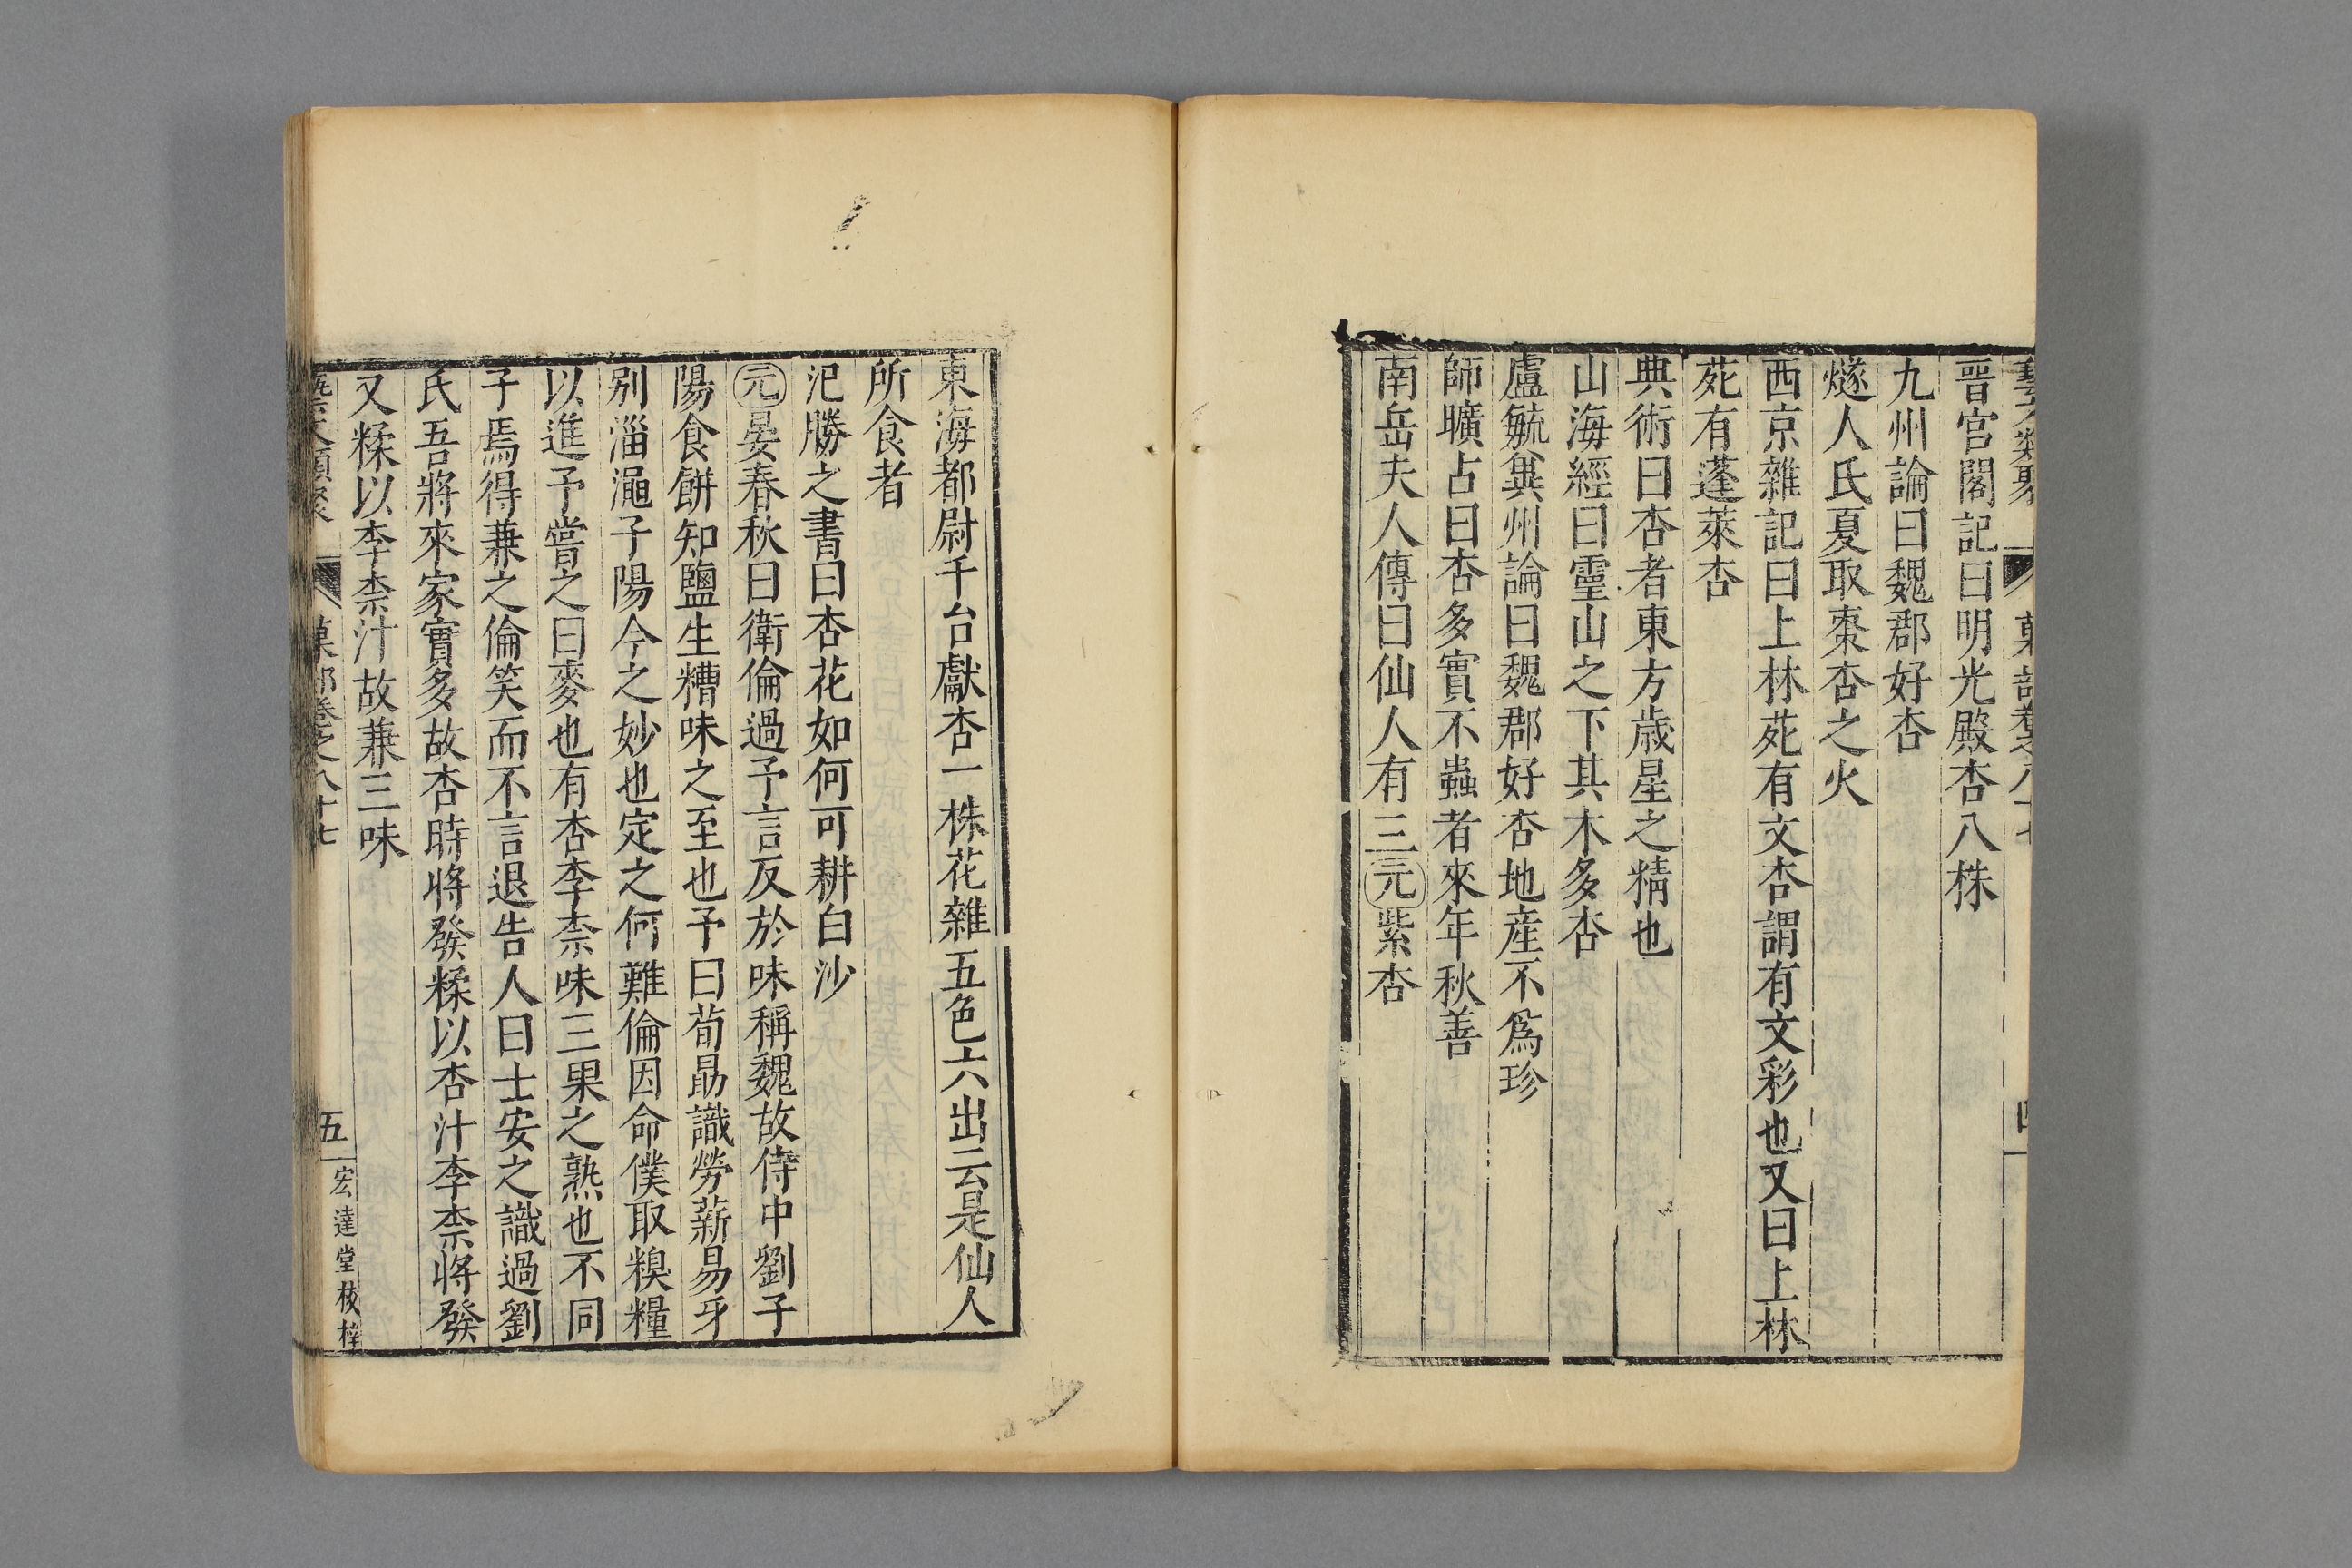 晉宮閣記曰明光殿杏八株
九州論曰魏郡好杏
燧人氏夏取棗杏之火
西京雜記曰上林苑有文杏謂有文彩也又曰上林
苑有蓬萊杏
典術曰杏者東方歲星之精也
山海經曰靈山之下其木多杏
盧毓兾州論曰魏郡好杏地産不為珍
師曠占曰杏多實不蟲者來年秋善
南岳夫人傳曰仙人有三元紫杏
東海都尉千台獻杏一株花雜五色六出云是仙人
所食者
汜勝之書曰杏花如何可耕白沙
元晏春秋曰衛倫過予言反於味稱魏故侍中劉子
陽食餅知鹽生糟味之至也予曰荀勗識勞薪易牙
别淄澠子陽今之妙也定之何難倫因命僕取糗糧
以進予嘗之曰麥也有杏李柰味三果之熟也不同
子焉得兼之倫笑而不言退告人曰士安之識過劉
氏吾將來家實多故杏時將發糅以杏汁李柰將發
又糅以李柰汁故兼三味
藝文類聚 菓部卷之八十七 五 宏達堂校梓